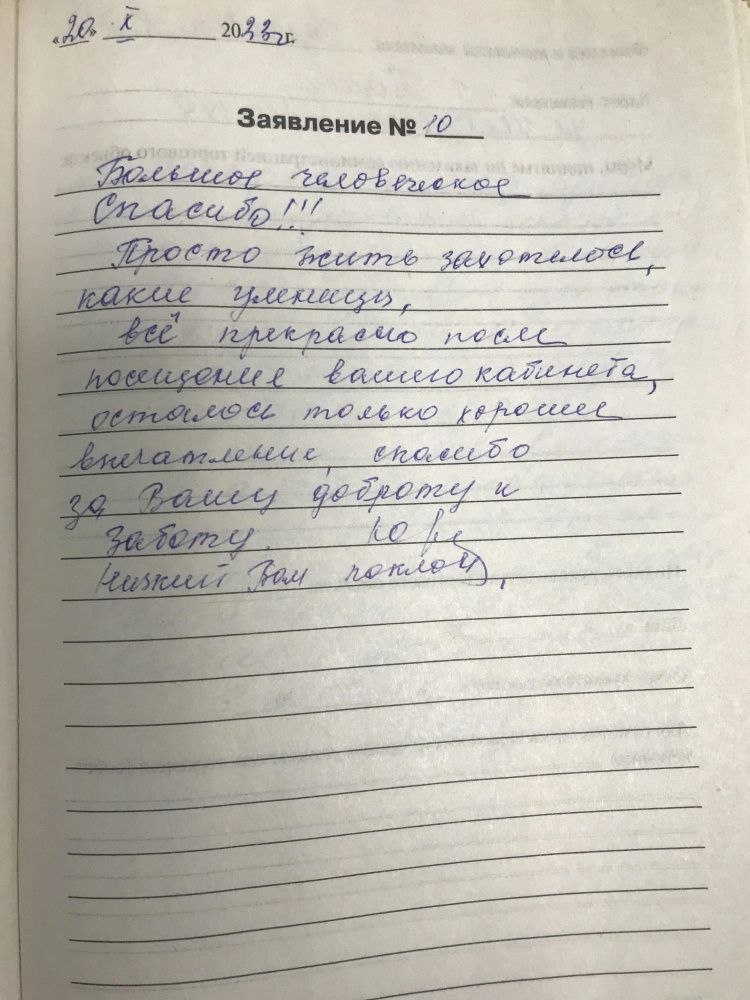 «20» X 2023 г.
Заявление № 10
Большое человеческое
Спасибо!!!
Просто жить захотелось,
какие умницы,
всё прекрасно после
посещения вашего кабинета,
осталось только хорошее
впечатление, спасибо
за Вашу доброту и
Заботу.
Низкий Вам поклон.